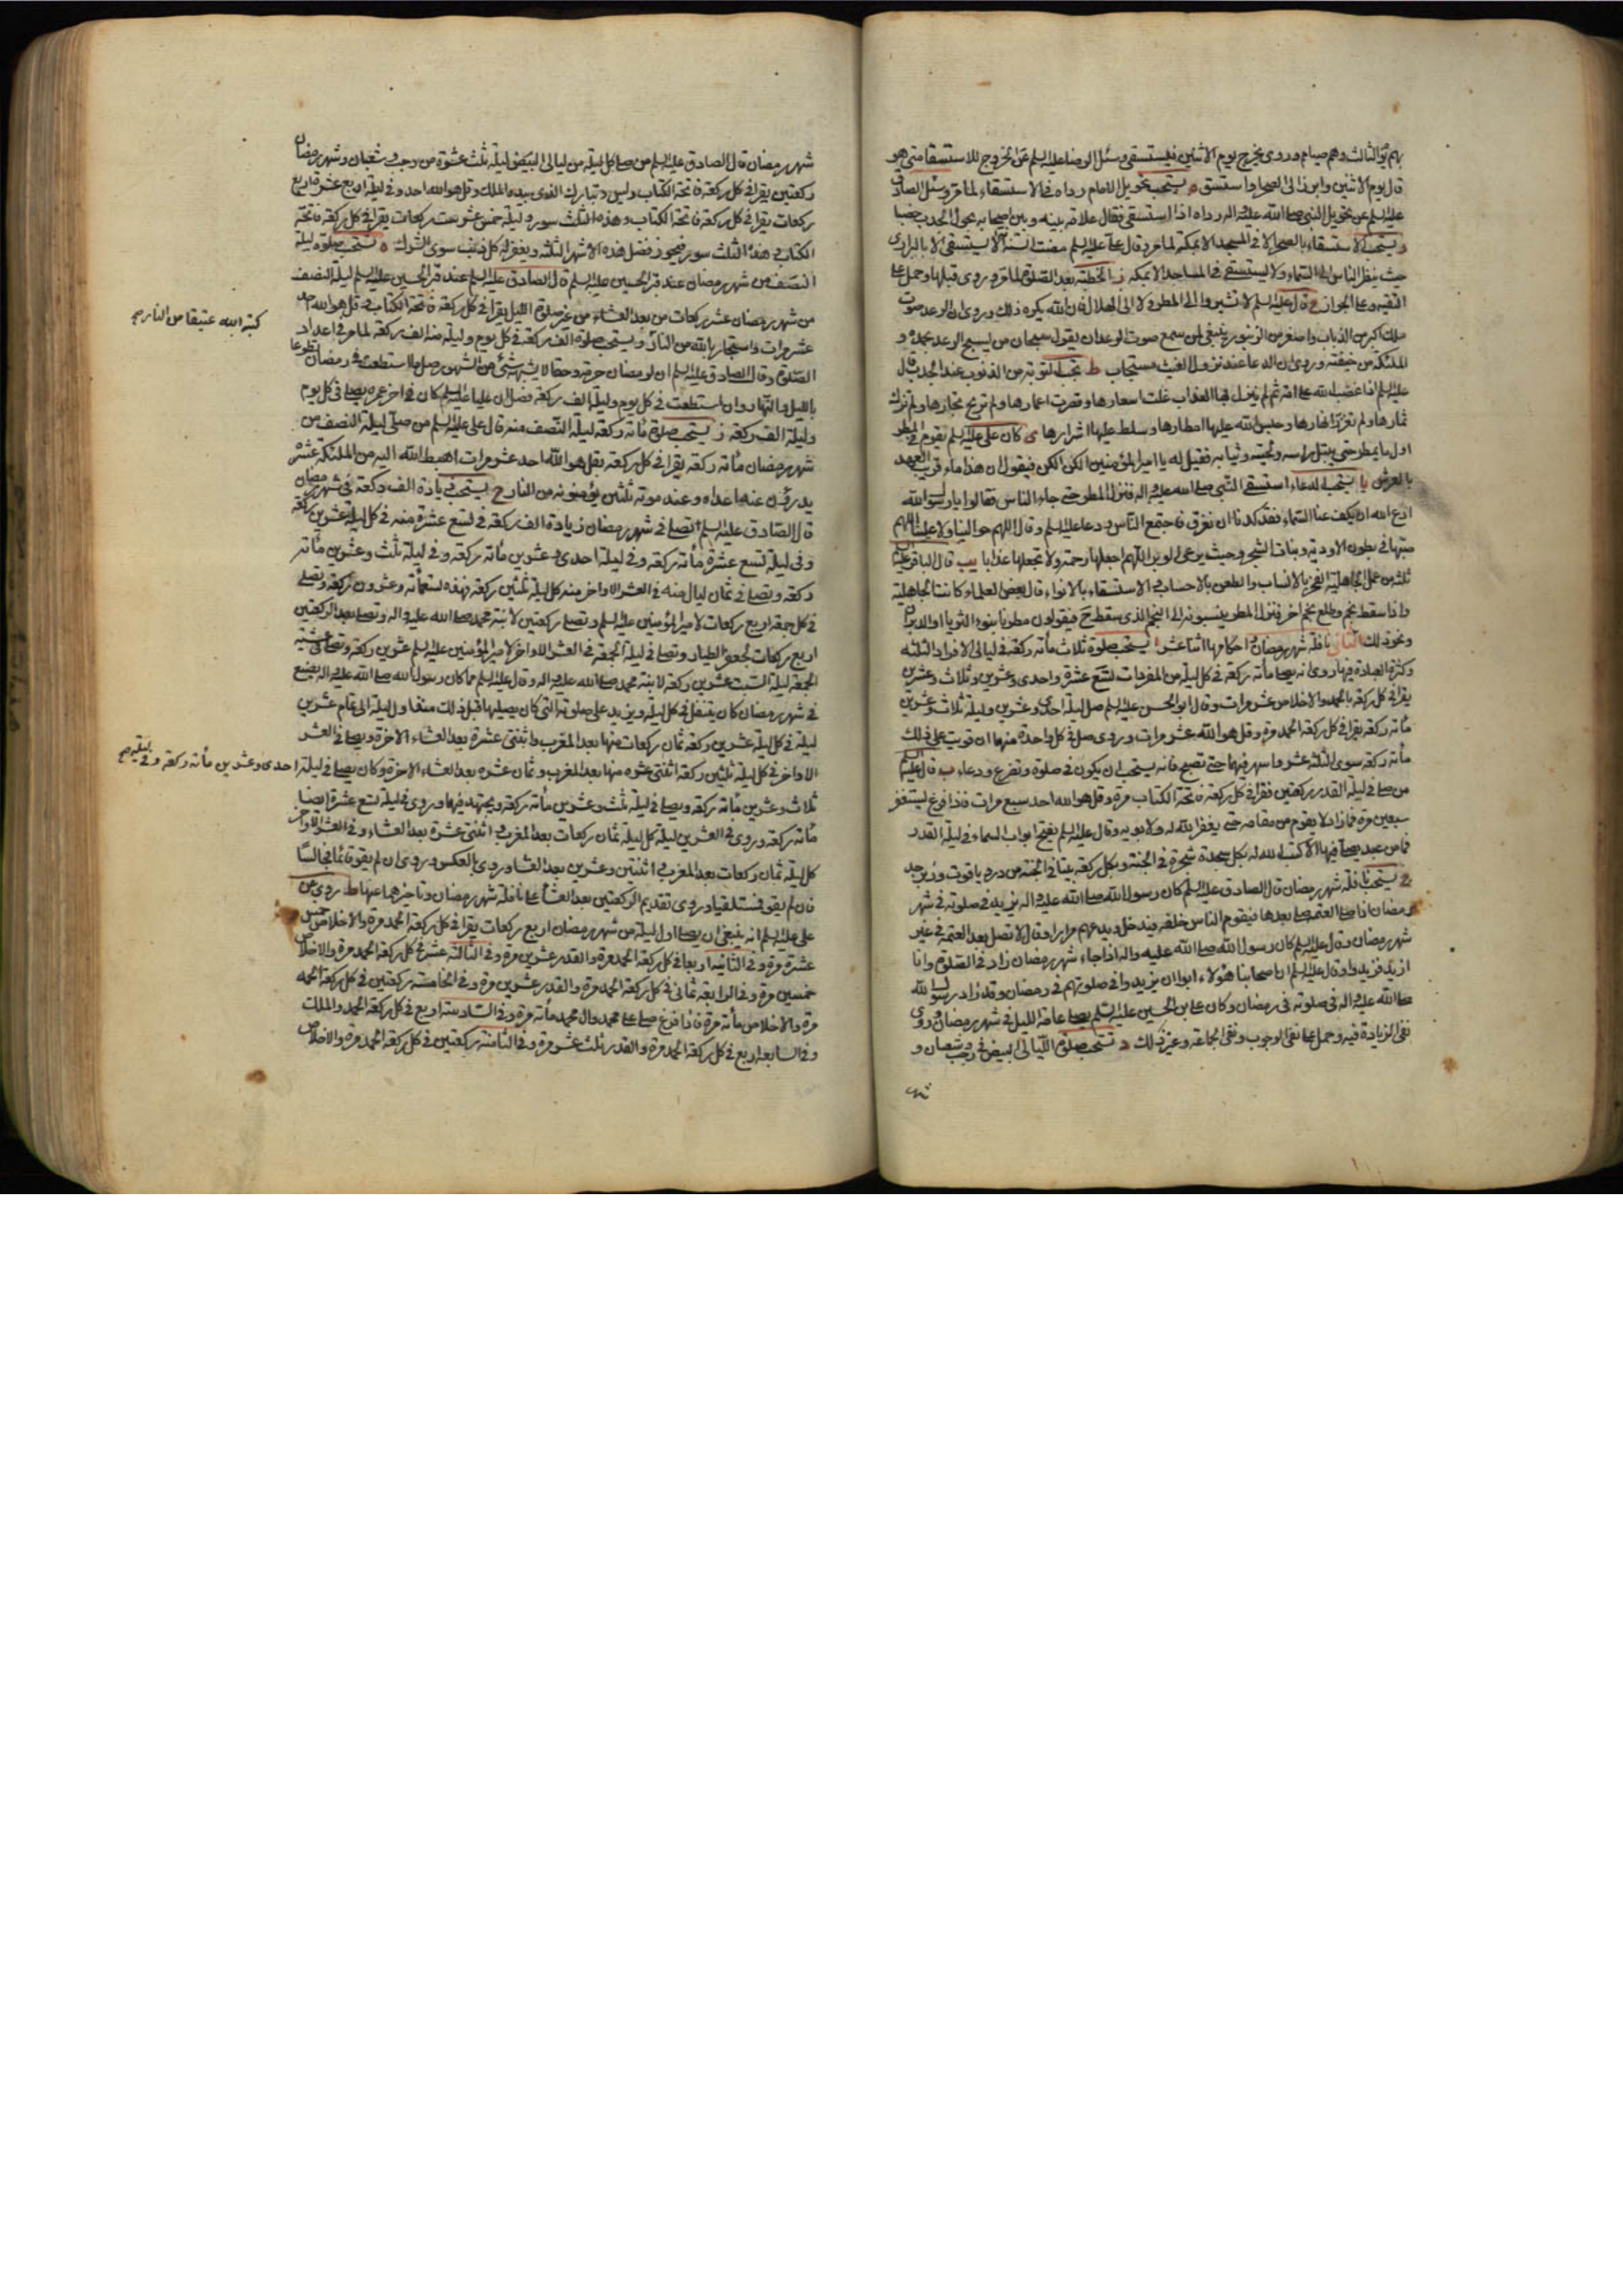 بهم يوم الثالث وهم صيام وروى يخرج يوم الاثنين فيستسقى وسئل الرضا عليه السلم عن الخروج للاستسقا متى هو
قال يوم الاثنين وابرزنا الى الصحراء واستسق ه يستحب تحويل الامام رداه فى الاستسقاء لما مر وسئل الصادق
عليه السلم عن تحويل النبى صلى الله عليه واله رداه اذا استسقى فقال علامة بينه وبين اصحابه يحول الجدب خصبا
و يستحب الاستسقاء بالصحراء لا فى المسجد الا بمكة لما مر وقال على عليه السلم مضت السنة انه لا يستسقى الا بالبرارى
حيث ينظر الناس الى السماء ولا يستسقى فى المساجد الا بمكة ز الخطبة بعد الصلوة لما مر وروى قبلها وحمل على
التقية وعلى الجواز ح قال عليه السلم لا تشيروا الى المطر ولا الى الهلال فان الله يكره ذلك وروى ان الرعد صوت
ملك اكبر من الذباب واصغر من الزنبور ينبغى لمن سمع صوت الرعد ان يقول سبحان من يسبح الرعد بحمده و
الملئكة من خيفته وروى ان الدعا عند نزول الغيث مستجاب ط تجب التوبة من الذنوب عند الجدب قال
عليه السلم اذا غضب الله على امة ثم لم ينزل بها العذاب غلت اسعارها وقصرت اعمارها ولم تربح تجارها ولم تزك
ثمارها ولم تغزر انهارها وحبس الله عليها امطارها وسلط عليها اشرارها ى كان على عليه السلم يقوم فى المطر
اول ما يمطر حتى يبتل راسه ولحيته وثيابه فقيل له يا امير المؤمنين الكن الكن فيقول ان هذا ماء قريب العهد
بالعرش يا يستحب الدعاء استسقى النبى صلى الله عليه واله فنزل المطر حتى جاء الناس فقالوا يا رسول الله
ادع الله ان يكف عنا السماء فقد كدنا ان نغرق فاجتمع الناس ودعا عليه السلم وقال اللهم حوالينا ولا علينا اللهم
صبها فى بطون الاودية ونبات الشجر وحيث يرعى اهل الوبر اللهم اجعلها رحمة ولا تجعلها عذابا يب قال الباقر عليه السلم
ثلثة من عمل الجاهلية الفخر بالانساب والطعن بالاحساب والاستسقاء بالانواء قال بعض العلماء كانت الجاهلية
واذا سقط نجم وطلع نجم اخر فنزل المطر ينسبونه الى النجم الذى سقط ح فيقولون مطرنا بنوء الثريا او الدبران
ونحو ذلك الثانى نافلة شهر رمضان واحكامها اثنا عشر ا يستحب صلوة ثلاث مأته ركعة فى ليالى الافراد الثلثة
وكثرة العبادة فيها روى انه يصلى مأته ركعة فى كل ليلة من المفردات تسع عشرة واحدى وعشرين وثلاث وعشرين
يقرا فى كل ركعة بالحمد والاخلاص عشر مرات وقال ابو الحسن عليه السلم صل ليلة احدى وعشرين وليلة ثلاث وعشرين
مأته ركعة يقرا فى كل ركعة الحمد مرة وقل هو الله عشر مرات وروى صل فى كل واحدة منهما ان قويت على ذلك
مأته ركعة سوى الثلثة عشر واسهر فيهما حتى تصبح فانه يستحب ان يكون فى صلوة وتضرع ودعاء ب قال عليه السلم
من صلى فى ليلة القدر ركعتين فقرا فى كل ركعة فاتحة الكتاب مرة وقل هو الله احد سبع مرات فاذا فرغ يستغفر
سبعين مرة فما زاد لا يقوم من مقامه حتى يغفر الله له ولابويه وقال عليه السلم يفتح ابواب السماء فى ليلة القدر
فما من عبد يصلى فيها الا كتب الله له بكل سجدة شجرة فى الجنة وبكل ركعة بيتا فى الجنة من در وياقوت وزبرجد
ج يستحب نافلة شهر رمضان قال الصادق عليه السلم كان رسول الله صلى الله عليه واله يزيد فى صلوته فى شهر
رمضان اذا صلى العتمة صلى بعدها فيقوم الناس خلفه فيدخل ويدعهم مرارا وقال لا تصل بعد العتمة فى غير
شهر رمضان وقال عليه السلم كان رسول الله صلى الله عليه واله اذا جاء شهر رمضان زاد فى الصلوة وانا
ازيد فزيدوا وقال عليه السلم ان اصحابنا هؤلاء ابوا ان يزيدوا فى صلوتهم فى رمضان وقد زاد رسول الله
صلى الله عليه واله فى صلوته فى رمضان وكان على بن الحسين عليه السلم يصلى عامة الليل فى شهر رمضان وروى
نفى الزيادة فيه وحمل على نفى الوجوب ونفى الجماعة وغير ذلك د تستحب صلوة الليالى البيض فى رجب وشعبان و
شهر
شهر رمضان قال الصادق عليه السلم من صلى كل ليلة من ليالى البيض ليلة ثلث عشرة من رجب وشعبان وشهر رمضان
ركعتين يقرا فى كل ركعة فاتحة الكتاب ويس وتبارك الذى بيده الملك وقل هو الله احد وفى ليلة اربع عشرة اربع
ركعات يقرا فى كل ركعة فاتحة الكتاب وهذه الثلث سور وليلة خمس عشر ست ركعات يقرا فى كل ركعة فاتحة
الكتاب وهذه الثلث سور فيحوز فضل هذه الاشهر الثلثة ويغفر له كل ذنب سوى الشرك ه تستحب صلوة ليلة
النصف من شهر رمضان عند قبر الحسين عليه السلم قال الصادق عليه السلم عند قبر الحسين عليه السلم ليلة النصف
من شهر رمضان عشر ركعات من بعد العشاء من غير صلوة الليل يقرا فى كل ركعة فاتحة الكتاب وقل هو الله احد
كتبه الله عتيقا من النار صح
عشر مرات واستجار بالله من النار و يستحب صلوة الف ركعة فى كل يوم وليلة منه الف ركعة لما مر فى اعداد
الصلوة وقال الصادق عليه السلم ان لرمضان حرمة وحقا لا يشبهه شئ من الشهور صل ما استطعت فى رمضان تطوعا
بالليل والنهار وان استطعت فى كل يوم وليلة الف ركعة فصل ان عليا عليه السلم كان فى اخر عمره يصلى فى كل يوم
وليلة الف ركعة ز يستحب صلوة مأته ركعة ليلة النصف منه قال على عليه السلم من صلى ليلة النصف من
شهر رمضان مأته ركعة يقرا فى كل ركعة بقل هو الله احد عشر مرات اهبط الله اليه من الملئكة عشرة
يدرؤن عنه اعداه وعند موته ثلثين يؤمنونه من النار ح يستحب زيادة الف ركعة فى شهر رمضان
قال الصادق عليه السلم تصلى فى شهر رمضان زيادة الف ركعة فى تسع عشرة منه فى كل ليلة عشرين ركعة
وفى ليلة تسع عشرة مأته ركعة وفى ليلة احدى وعشرين مأته ركعة وفى ليلة ثلث وعشرين مأته
ركعة ويصلى فى ثمان ليال منه فى العشر الاواخر منه كل ليلة ثلثين ركعة فهذه تسعمأته وعشرون ركعة وتصلى
فى كل جمعة اربع ركعات لامير المؤمنين عليه السلم وتصلى ركعتين لابنة محمد صلى الله عليه واله وتصلى بعد الركعتين
اربع ركعات لجعفر الطيار وتصلى فى ليلة الجمعة فى العشر الاواخر لامير المؤمنين عليه السلم عشرين ركعة وتصلى عشية
الجمعة ليلة السبت عشرين ركعة لابنة محمد صلى الله عليه واله وقال عليه السلم مما كان رسول الله صلى الله عليه واله يصنع
فى شهر رمضان كان يتنفل فى كل ليلة ويزيد على صلوته التى كان يصليها قبل ذلك منذ اول ليلة الى تمام عشرين
ليلة فى كل ليلة عشرين ركعة ثمان ركعات منها بعد المغرب واثنتى عشرة بعد العشاء الاخرة ويصلى فى العشر
الاواخر فى كل ليلة ثلثين ركعة اثنتى عشرة منها بعد المغرب وثمان عشرة بعد العشاء الاخرة وكان يصلى فى ليلة احدى وعشرين مأته ركعة وفى ليلة صح
ثلاث وعشرين مأته ركعة ويصلى فى ليلة ثلث وعشرين مأته ركعة ويجتهد فيهما وروى فى ليلة تسع عشرة ايضا
مأته ركعة وروى فى العشرين ليلة كل ليلة ثمان ركعات بعد المغرب اثنتى عشرة بعد العشاء وفى العشر الاواخر
كل ليلة ثمان ركعات بعد المغرب اثنتين وعشرين بعد العشاء وروى بالعكس وروى ان لم يقو قائما فجالسا
فان لم يقو فمستلقيا وروى تقديم الركعتين بعد العشا على نافلة شهر رمضان وتاخيرهما عنها ط روى عن
على عليه السلم انه ينبغى ان يصلى اول ليلة من شهر رمضان اربع ركعات يقرا فى كل ركعة الحمد مرة والاخلاص خمس
عشرة مرة وفى الثانية اربعا فى كل ركعة الحمد مرة والقدر عشرين مرة وفى الثالثة عشر فى كل ركعة الحمد مرة والاخلاص
خمسين مرة وفى الرابعة ثمانى فى كل ركعة الحمد مرة والقدر عشرين مرة وفى الخامسة ركعتين فى كل ركعة الحمد
مرة والاخلاص مأته مرة فاذا فرغ صلى على محمد وال محمد مأته مرة وفى السادسة اربع فى كل ركعة الحمد والملك
وفى السابعة اربع فى كل ركعة الحمد مرة والقدر ثلث عشر مرة وفى الثامنة ركعتين فى كل ركعة الحمد مرة والاخلاص